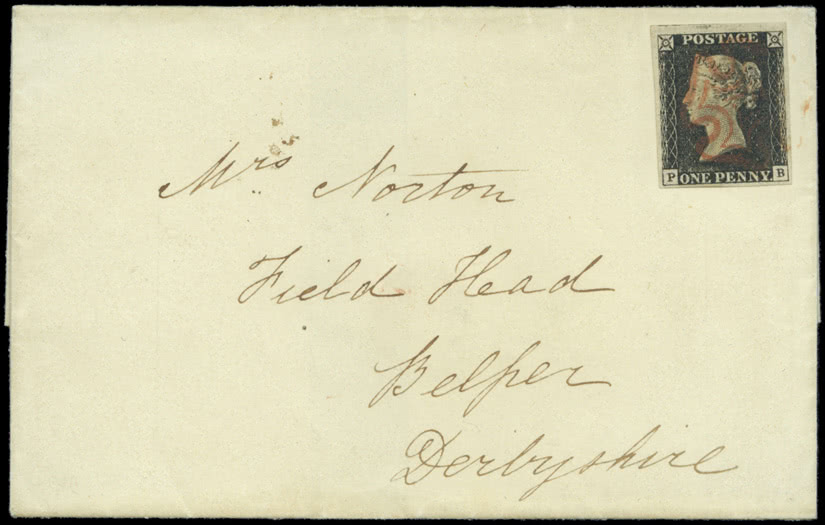 POSTAGE
P ONE PENNY. B
Mrs Norton
Field Head
Belper
Derbyshire